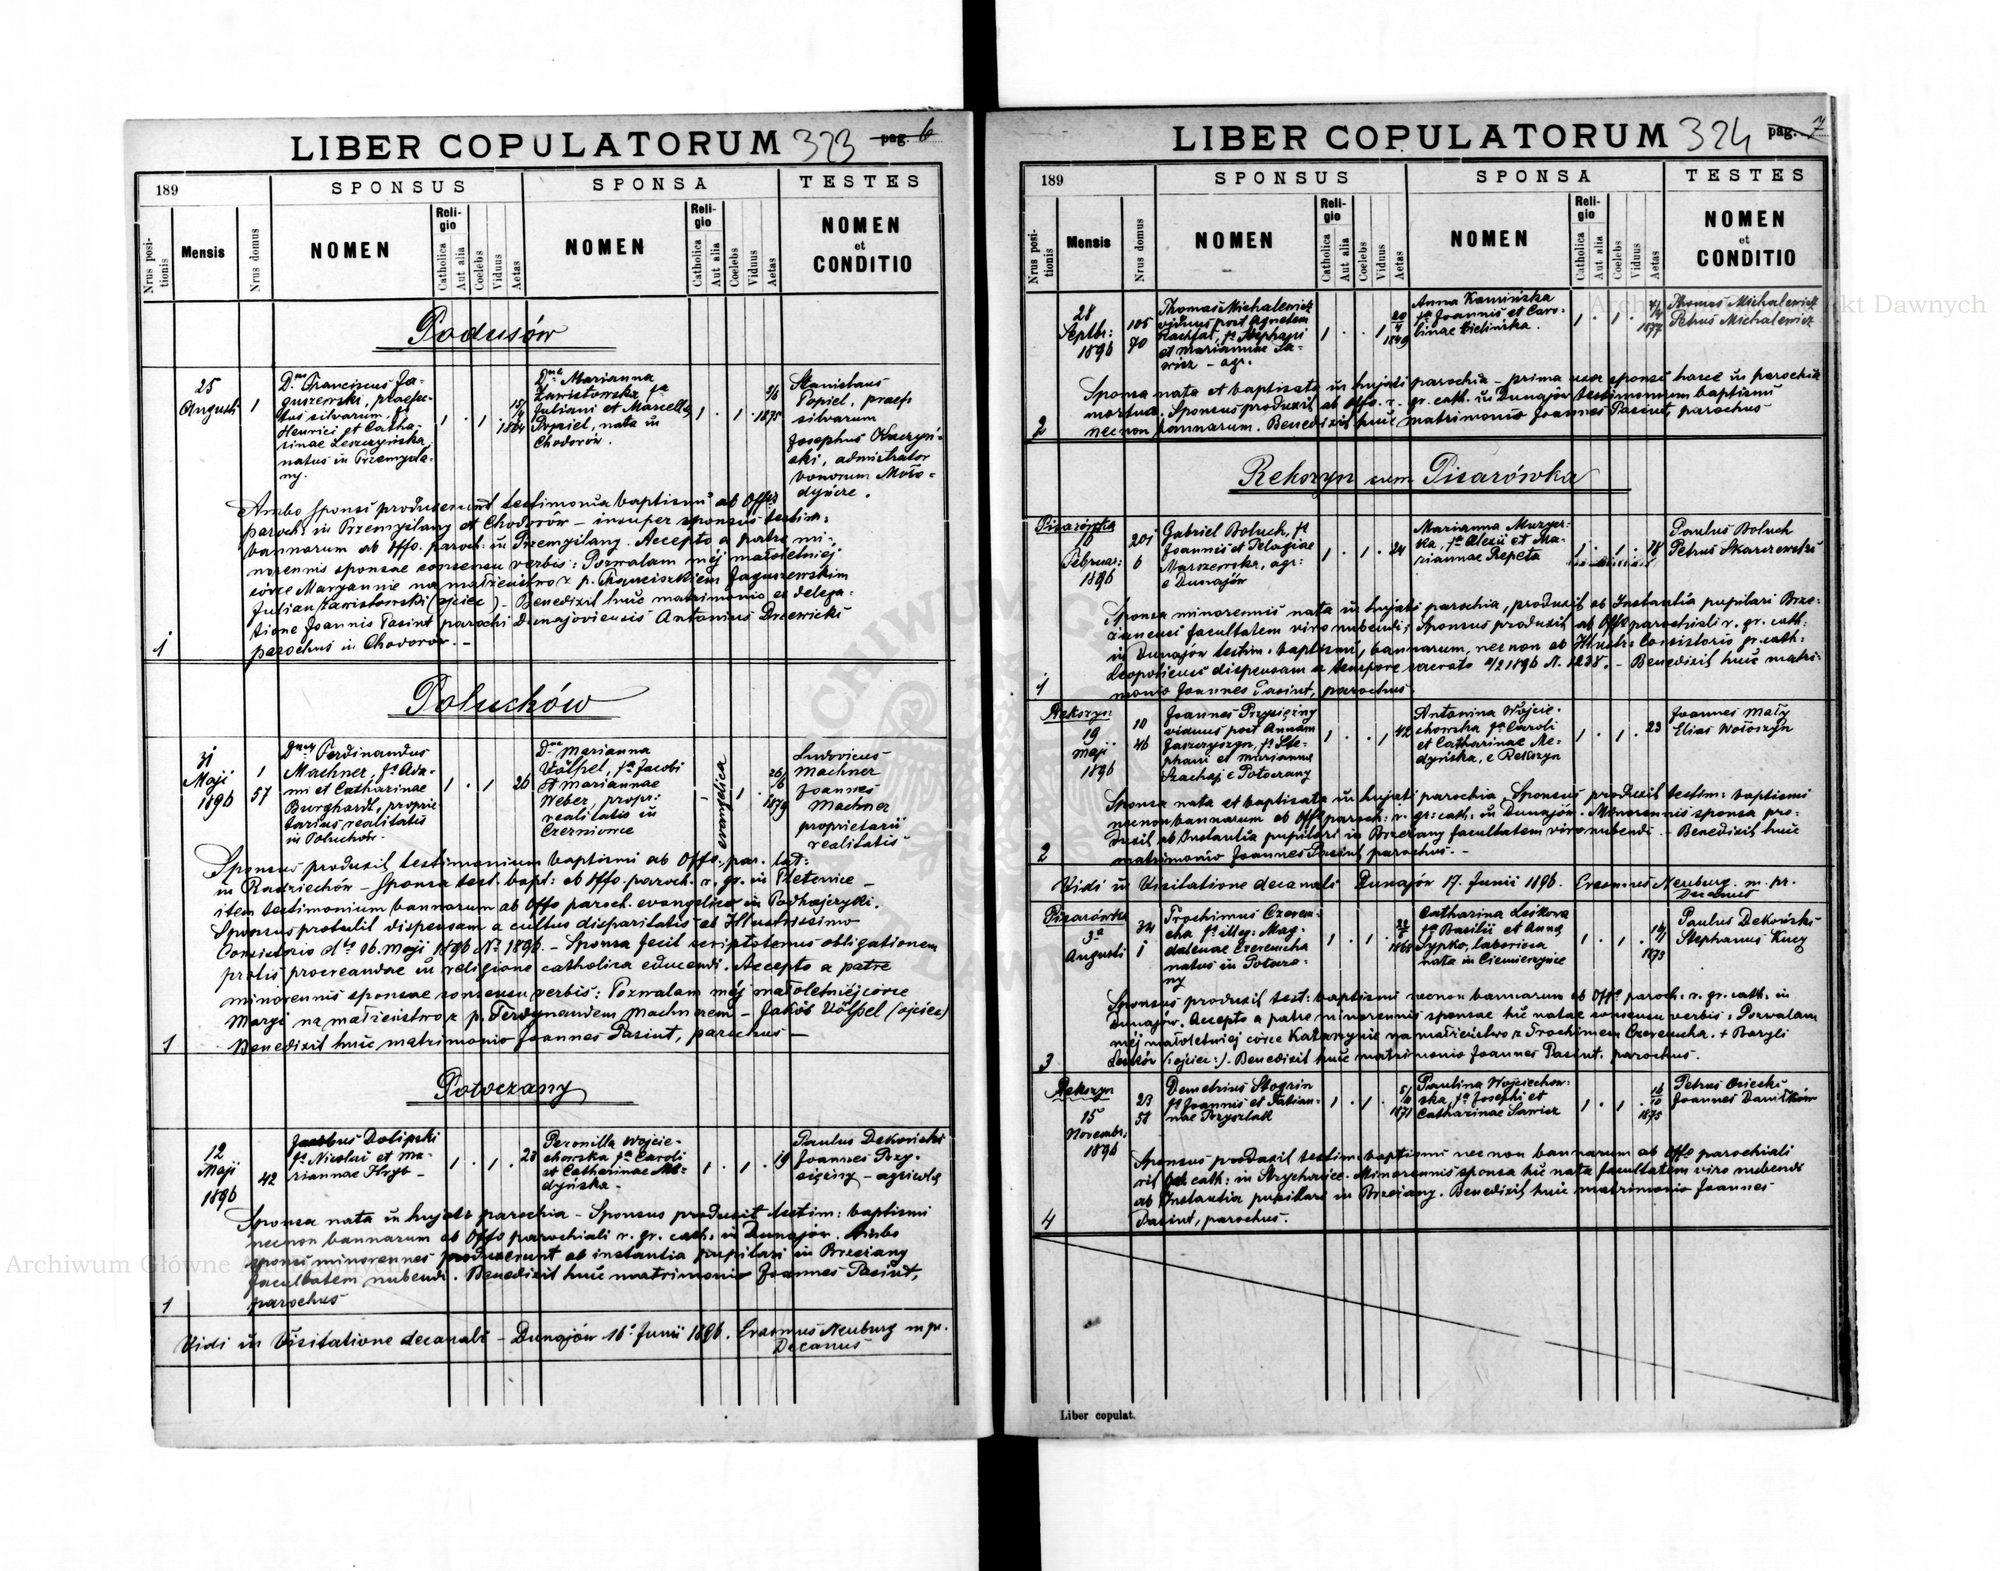 LIBER COPULATORUM 323 pag. 6
189 SPONSUS SPONSA TESTES
Nrus positionis Mensis Nrus domus NOMEN Religio Catholica Aut alia Coelebs Viduus Aetas NOMEN Religio Catholica Aut alia Coelebs Viduus Aetas NOMEN et CONDITIO
Podusów
25
Augusti
1
Dnus Franciscus Ja-
guszewski, praefec-
tus silvarum, fs
Henrici et Catha-
rinae Leszczyńska
natus in Przemyśla-
ny.
1 . 1 . 1864
Dna Marianna
Zawistowska fa
Juliani et Marcella
Popiel, nata in
Chodorów.
1 . 1 . 1875
Stanislaus
Popiel, praef.
silvarum
Josephus Kaczyń-
ski, admistrator
bonorum Moło-
dyńcze.
Ambo sponsi produxerunt testimonia baptismi ab Offis
paroch: in Przemyślany et Chodorów – insuper sponsus testim:
bannorum ab Offo. paroch: in Przemyślany. Accepto a patre mi-
norennis sponsae consensu verbis: Pozwalam mej małoletniej
córce Maryannie na małżeństwo z p. Franciszkiem Jaguszewskim
Julian Zawistowski (ojciec) – Benedixit huic matrimonio ex delega-
tione Joannis Pasiut parochi Dunajoviensis Antonius Drzewicki
1 parochus in Chodorów. –
Poluchów
31
Maji
1896
1
57
Dnus Ferdinandus
Machner, fs Ada-
mi et Catharinae
Burghardt, proprie
tarius realitatis
in Poluchów.
1 . 1 . 26
Dna Marianna
Völpel, fa Jacobi
et Mariannae
Weber, propr:
realitatis in
Czerniowce
– evangelica 1 . 1879
Ludovicus
Machner
Joannes
Machner
proprietarii
realitatis
Sponsus produxit testimonium baptismi ab Offo. par. lat:
in Radziechów – Sponsa test. bapt: ab offo. paroch. r. gr. in Pletenice –
item testimonium bannorum ab Offo paroch. evangelico in Podhajczyki.
Sponsus protulit dispensam a cultus disparitatis et Illustrissimo
Consistorio dto 16. Maji 1896 No 1896. – Sponsa fecit scriptotenus obligationem
prolis procreandae in religione catholica educendi. Accepto a patre
minorennis sponsae consensu verbis: Pozwalam mej małoletniej córce
Maryi na małżeństwo z p. Ferdynandem Machnerem – Jakób Völpel (ojciec)
1 Benedixit huic matrimonio Joannes Pasiut, parochus –
Potoczany
12
Maji
1896
42
Jacobus Dolipski
fs Nicolai et Ma-
riannae Hryb –
1 . 1 . 23
Petronilla Wojcie-
chowska fa Caroli
et Catharinae Me-
dyńska. –
1 . 1 . 19
Paulus Dekoński
Joannes Przy-
siężny – agricola
Sponsa nata in hujate parochia – Sponsus produxit testim: baptismi
necnon bannorum ab Offo parochiali r. gr. cath. in Dunajów. Ambo
sponsi minorennes produxerunt ab instantia pupilari in Brzeżany
facultatem nubendi. Benedixit huic matrimonio Joannes Pasiut,
1 parochus
Vidi in Visitatione decanali – Dunajów 16. Junii 1896. Erasmus Neuburg m. pr.
Decanus
LIBER COPULATORUM 324 pag. 7
189 SPONSUS SPONSA TESTES
Nrus positionis Mensis Nrus domus NOMEN Religio Catholica Aut alia Coelebs Viduus Aetas NOMEN Religio Catholica Aut alia Coelebs Viduus Aetas NOMEN et CONDITIO
28
Septbr:
1896
105
70
Thomas Michalewicz
viduus post Agnetem
fs Stephani
et Mariannae Sa-
wicz – agr.
1 . . 1 20/4 1849
Anna Kamińska
fa Joannis et Caro-
linae Zielińska.
1 . 1 . 1877
Thomas Michalewicz
Petrus Michalewicz
Sponsa nata et baptisata in hujati parochia – prima uxor sponsi haec in parochia
mortua. Sponsus produxit ab Offo. r. gr. cath. in Dunajów testimonium baptismi
2 necnon bannorum. Benedixit huic matrimonio Joannes Pasiut, parochus
Rekszyn cum Pisarówka
Pisarówka
16
Februar:
1896
201
6
Gabriel Boluch, fs
Joannis et Pelagiae
Marszewska, agr:
e Dunajów
1 . 1 . 24
Marianna Muzyr-
ka, fa Alexii et Ma-
riannae Repeta
1 . 1 . 18
Paulus Boluch
Petrus Skarzewski
Sponsa minorennis nata in hujati parochia, produxit ab Instantia pupilari Brze-
zanensi facultatem viro nubendi; Sponsus produxit ab Offo parochiali r. gr. cath:
in Dunajów testim: baptismi, bannorum, necnon ab Illustr: Consistorio gr. cath:
Leopoliensi dispensam a tempore vacrato 4/2 1896 N. 1238. – Benedixit huic matri-
1 monio Joannes Pasiut, parochus.
Rekszyn
19
Maji
1896
10
46
Joannes Przysiężny
viduus post Annam
Jaszczyszyn, fs Ste-
phani et Marianna
Szachaj e Potoczany
1 . . 1 42
Antonina Wojcie-
chowska fa Caroli
et Catharinae Me-
dyńska, e Rekszyn
1 . 1 . 23
Joannes Mały
Elias Wołoszyn
Sponsa nata et baptisata in hujati parochia. Sponsus produxit testim: baptismi
necnon bannorum ab Offo paroch: r. gr: cath. in Dunajów. Minorennis sponsa pro-
duxit ab Instantia pupilari in Brzeżany facultatem viro nubendi. – Benedixit huic
2 matrimonio Joannes Pasiut, parochus. –
Vidi in Visitatione decanali Dunajów 17. Junii 1896. Erasmus Neuburg m. pr.
Decanus
Pisarówka
3a
Augusti
34
1
Trochimus Czerem-
cha fs illeg: Mag-
dalenae Czeremcha
natus in Potocza-
ny
1 . 1 . 1868
Catharina Leśkowa
fa Basilii et Anna
Sypko, laboriosa
nata in Ciemierzyńce
1 . 1 . 1873
Paulus Dekoński
Stephanus Kucy
Sponsus produxit test: baptismi necnon bannorum ab Offo paroch. r. gr. cath. in
Dunajów. Accepto a patre minorennis sponsae hic natae consensu verbis: Pozwalam
mej małoletniej córce Katarzynie na małżeństwo z Trochimem Czeremcha. + Bazyli
3 Leśków (:ojciec:). Benedixit huic matrimonio Joannes Pasiut. parochus.
Rekszyn
15
Novembr:
1896
23
58
Demetrius Stogrin
fs Joannis et Tatian-
nae Przyszlak
1 . 1 . 1871
Paulina Wojciechow-
ska, fa Josephi et
Catharinae Sawicz
1 . 1 . 16/10 1875
Petrus Osiecki
Joannes Daniłków
Sponsus produxit testim: baptismi necnon bannorum ab Offo parochiali
rit. gr. cath: in Strychańce. Minorennis sponsa hic nata facultatem viro nubendi
ab Instantia pupilari in Brzeżany. Benedixit huic matrimonio Joannes
4 Pasiut, parochus.
Liber copulat.
Archiwum Główne Akt Dawnych
Archiwum Główne Akt Dawnych